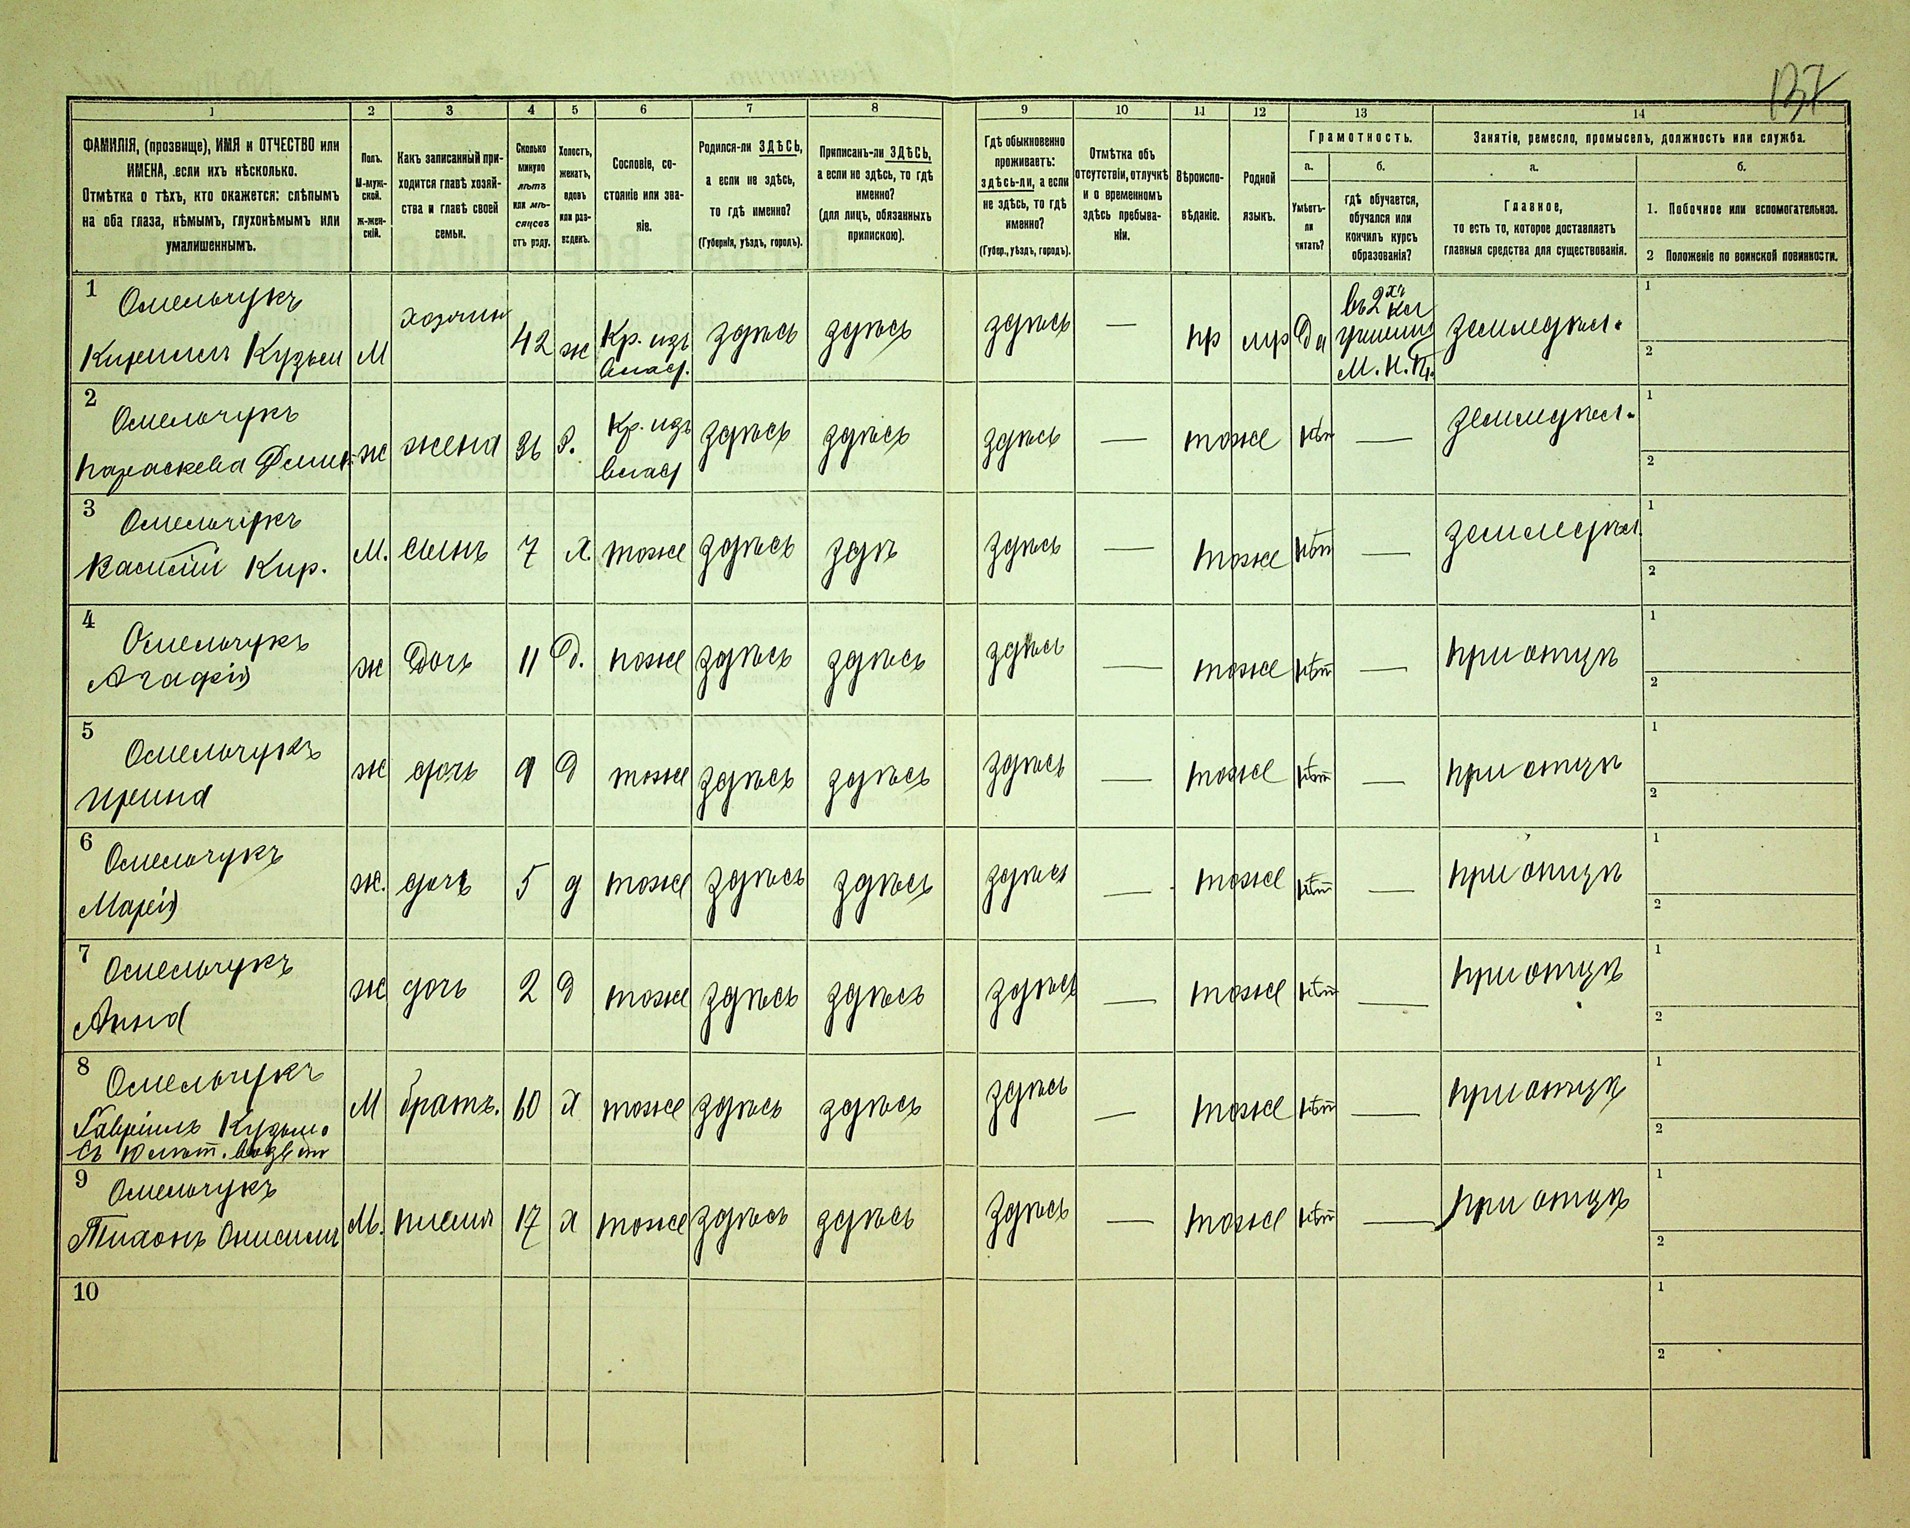 137
1 2 3 4 5 6 7 8 9 10 11 12 13 14
ФАМИЛІЯ, (прозвище), ИМЯ и ОТЧЕСТВО или
ИМЕНА, если ихъ нѣсколько.
Отмѣтка о тѣхъ, кто окажется: слѣпымъ
на оба глаза, нѣмымъ, глухонѣмымъ или
умалишеннымъ.
Полъ.
М-муж-
ской.
ж-жен-
скій.
Какъ записанный при-
ходится главѣ хозяй-
ства и главѣ своей
семьи.
Сколько
минуло
лѣтъ
или мѣ-
сяцевъ
отъ роду.
Холостъ,
женатъ,
вдовъ
или раз-
веденъ.
Сословіе, со-
стояніе или зва-
ніе.
Родился-ли ЗДѢСЬ,
а если не здѣсь,
то гдѣ именно?
(Губернія, уѣздъ, городъ).
Приписанъ-ли ЗДѢСЬ,
а если не здѣсь, то гдѣ
именно?
(для лицъ, обязанныхъ
припискою).
Гдѣ обыкновенно
проживаетъ:
здѣсь-ли, а если
не здѣсь, то гдѣ
именно?
(Губер., уѣздъ, городъ).
Отмѣтка объ
отсутствіи, отлучкѣ
и о временномъ
здѣсь пребыва-
ніи.
Вѣроиспо-
вѣданіе.
Родной
языкъ.
Грамотность.
а.
Умѣетъ-
ли
читать?
б.
гдѣ обучается,
обучался или
кончилъ курсъ
образованія?
Занятіе, ремесло, промыселъ, должность или служба.
а.
Главное,
то есть то, которое доставляетъ
главныя средства для существованія.
б.
1. Побочное или вспомогательное.
2 Положеніе по воинской повинности.
1
Омельчукъ
Кириллъ Кузьм
М
хозяинъ
42
ж
Кр. изъ
владѣ.
здѣсь
здѣсь
здѣсь
—
пр
мр
Да
въ 2хъ кл
училищ
М. Н. Пр.
земледѣл.
1
2
2
Омельчукъ
Параскева
ж
жена
36
З.
Кр. изъ
владѣ
здѣсь
здѣсь
здѣсь
—
тоже
нѣт
—
земледѣл.
1
2
3
Омельчукъ
Василій Кир.
М.
сынъ
7
х.
тоже
здѣсь
здѣ
здѣсь
—
тоже
нѣт
—
земледѣл.
1
2
4
Омельчукъ
Агафія
ж
Дочь
11
Д.
тоже
здѣсь
здѣсь
здѣсь
—
тоже
нѣт
—
при отцѣ
1
2
5
Омельчукъ
Ирина
ж
дочь
9
д
тоже
здѣсь
здѣсь
здѣсь
—
тоже
нѣт
—
при отцѣ
1
2
6
Омельчукъ
Марія
ж.
дочь
5
д
тоже
здѣсь
здѣсь
здѣсь
—
тоже
нѣт
—
при отцѣ
1
2
7
Омельчукъ
Анна
ж
дочь
2
д
тоже
здѣсь
здѣсь
здѣсь
—
тоже
нѣт
—
при отцѣ
1
2
8
Омельчукъ
Гавріилъ Кузьм.
М
братъ.
х
тоже
здѣсь
здѣсь
здѣсь
—
тоже
нѣт
—
при отцѣ
1
2
9
Омельчукъ
Тихонъ Онисим
М.
племя
17
х
тоже
здѣсь
здѣсь
здѣсь
—
тоже
нѣт
—
при отцѣ
1
2
10
1
2